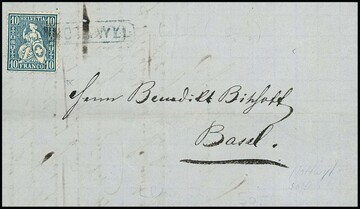 10 HELVETIA 10
10 FRANCO 10
Herrn Benedikt Bischoff
Basel.